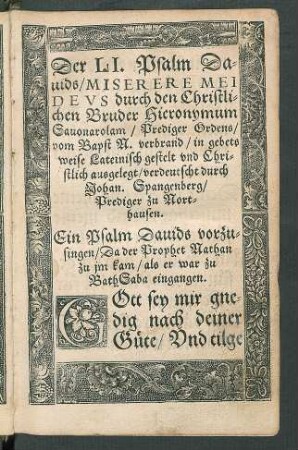 Der LI. Psalm Da
uids/MISERERE MEI
DEVS durch den Christli
chen Bruder Hieronymum
Sauonarolam / Prediger Ordens/
vom Bapst A. verbrand / in gebets
weise Lateinisch gestelt vnd Chri-
stlich ausgelegt/ verdeutscht durch
Johan. Spangenberg/
Prediger zu Nort-
hausen.
Ein Psalm Dauids vorzu-
singen/ Da der Prophet Nathan
zu jm kam/ als er war zu
BathSaba eingangen.
GOtt sey mir gne-
dig nach deiner
Güte/ Vnd tilge